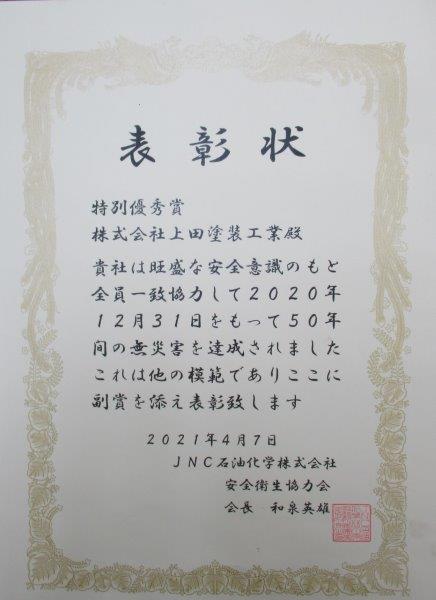 表彰状
特別優秀賞
株式会社上田塗装工業殿
貴社は旺盛な安全意識のもと
全員一致協力して2020年
12月31日をもって50年
間の無災害を達成されました
これは他の模範でありここに
副賞を添え表彰致します
2021年4月7日
JNC石油化学株式会社
安全衛生協力会
会長 和泉英雄